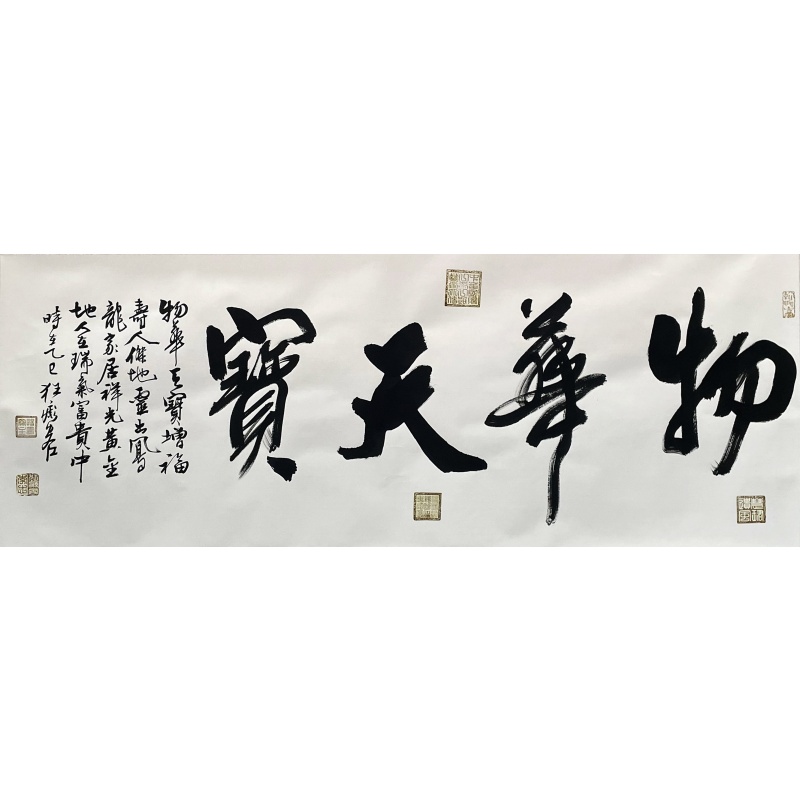 物華天寶
物華天寶增福
壽人傑地靈出鳳
龍家居祥光黃金
地人生瑞氣富貴中
時在乙巳